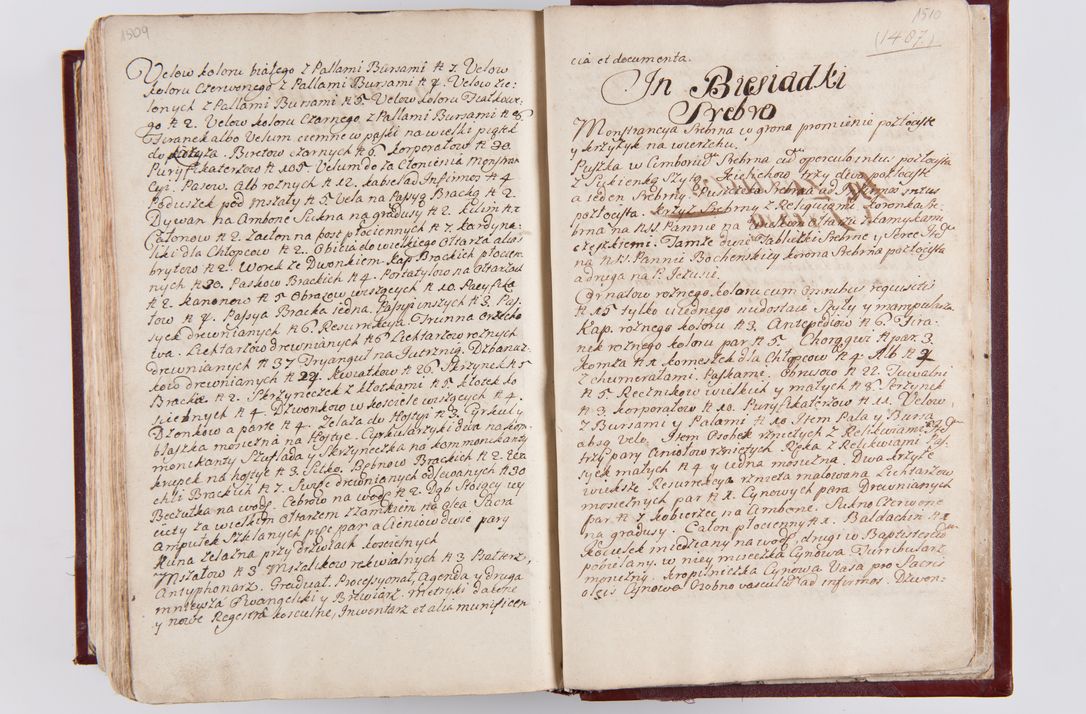 1509
Velow koloru białego z Pallami Bursami # 7. Velow
koloru Czerwonego z Pallami Bursami # 4. Velow Zie-
lonych z Pallami Bursami # 5. Velow koloru Fiałkowe-
go # 2. Velow koloru Czarnego z Pallami Bursami # 8
Firanek albo Velum ciemne w paski na wielki piątek
do. Biretow czarnych # 6. korporałow # 30.
Puryfikaterzow # 105. Velum do za Słonienia Monstran
cyi. Pasow. Alb rożnych # 12. kabielad Infirmor # 4
Poduszek pod Mszały # 5 Vela na Passyą Bracką # 2.
Dywan na Ambone Sukna na gradusy # 2. kilim # 1
Całonow # 2. zasłon na post płociennych # 7. kardyna-
liki dla Chłopcow # 2. Obicia do wielkiego Ołtarza alias
brytow # 2. Worek ze Dwonkiem. kap Brackich płocien
nych # 20. Paskow Brackich # 4. Portatylow na Ołtarzach
# 2. kanonow # 5 Obrazow wiszących # 10. Puryfika
łow # 4. Passya Bracka jedna. Passyi inszych # 3. Pas-
syek drewnianych # 6 Resurrekcya. Trunna
twa. Lichtarzow drewnianych # 6 Lichtarzow rożnych
drewnianych # 37 Tryanguł na Jutrznią. Dzbanusz
kow drewnianych # 22. kwiatkow # 26. Skrzynek # 5
Bracka # 2. Skrzyneczek z kłotkami # 5 kłotek ko
sciennych # 4 Dzwonkow w kosciele wiszących # 4.
Dzonkow a parte # 4. Zelaza do Hostyi # 3. Cyrkuły
blaszka mosiężna na Hostye. Cyrkularzyki dwa na kom
monikanty Szuflada y Skrzyneczka na kommonikanty
krupek na hostye # 3. Sitko. Bębnow Brackich # 2. Ska
ehli Brackich # 7. Swiec drewnianych odlewanych # 30
Beczułka na wodę. Cebrow na wodę # 2. Dąb Stojący wy
cięty za wielkim Ołtarzem z zamkiem na olea Sacra
Ampułek Szklanych pięć par a Cieniow dwie pary
Kuna zelazna przy drzwiach kościelnych
Mszałow # 3 Mszalikow rekwialnych # 3 Psałterz,
Antyphonarz. Graduał. Processyonał, Agenda y druga
mnieysza Ewangeliki y Brewiarz. metryki dawne
y nowe Regestra kościelne, Inwentarz et alia munificen

1510
(1487)
cia et documenta.
In Biesiadki
Srebro
Monstrancya Srebrna w grona promienie pozłociste
y krzyżyk na wierzchu.
Puszka w Cimborium Srebrna cum operculo intus pozłocista
z Sukienką Szytą. Kielichow trzy dwa pozłociste
a jeden Srebrny. Puszeczka Srebrna ad Infirmos intus
pozłocista. Krzyż Srebrny z Reliquiami. koronka Sre
brna na NSS Pannie na Wielkim Ołtarzu z zamyskami
czeskiemi. Tamże dwie Tabliczki Srebrne y Serce Jedn
na NSS Pannie Bochenskiey korona Srebrna pozłocista
a druga na P. Jezusie.
Ornatow rożnego koloru cum omnibus requisitis
# 15 tylko u jednego nudostaie Stuły y manipularza
Kap. rożnego koloru # 3. Antepediow # 6. Fira-
nek rożnego koloru par # 5. Chorągwi # par. 3.
Komża # 1. komeszek dla Chłopcow # 4. Alb # 7
z chumerałami. Paskami. Obrusow # 22. Tuwalni
# 5. Recznikow wielkich y małych # 8. Skrzynek
# 3. korporałow # 10. Puryfikaterzow # 11. Velow,
z Bursami y Palami # 10 Item Pala y Bursa
absq Velo. Item Osobek rzniętych z Relikwiami
trzy pary Aniołow rzniętych Ręka z Relikwiami Pas-
syek małych # 4 y jedna mosiężna. Dwa krzyże
większe Resurrekcya rznięta malowana Lichtarzow
mosiężnych par # 1. Cynowych para Drewnianych
par # 7 kobierzec na Ambone. Sukno Czerwone
na gradusy. Całon płocienny # 1. Baldachin #
Kociełek miedziany na wodę, drugi w Baptisterium
pobielany. w niey miseczka Cynowa Turribularz
mosiężny. kropielniczka Cynowa Vasa pro Sacris
oleis Cynowa Osobno vasculum ad infirmos. Dzwon-